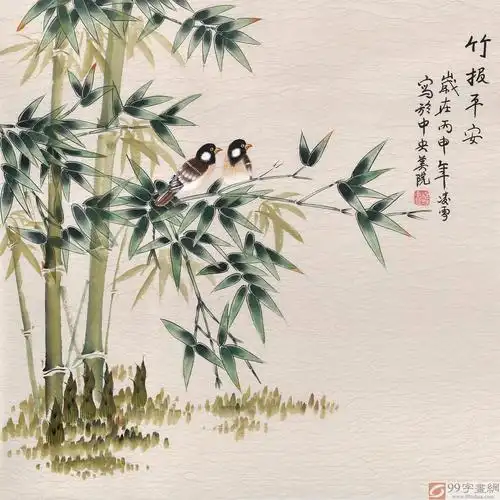 竹报平安
岁在丙申年凌雪
写於中央美院
99字畫網